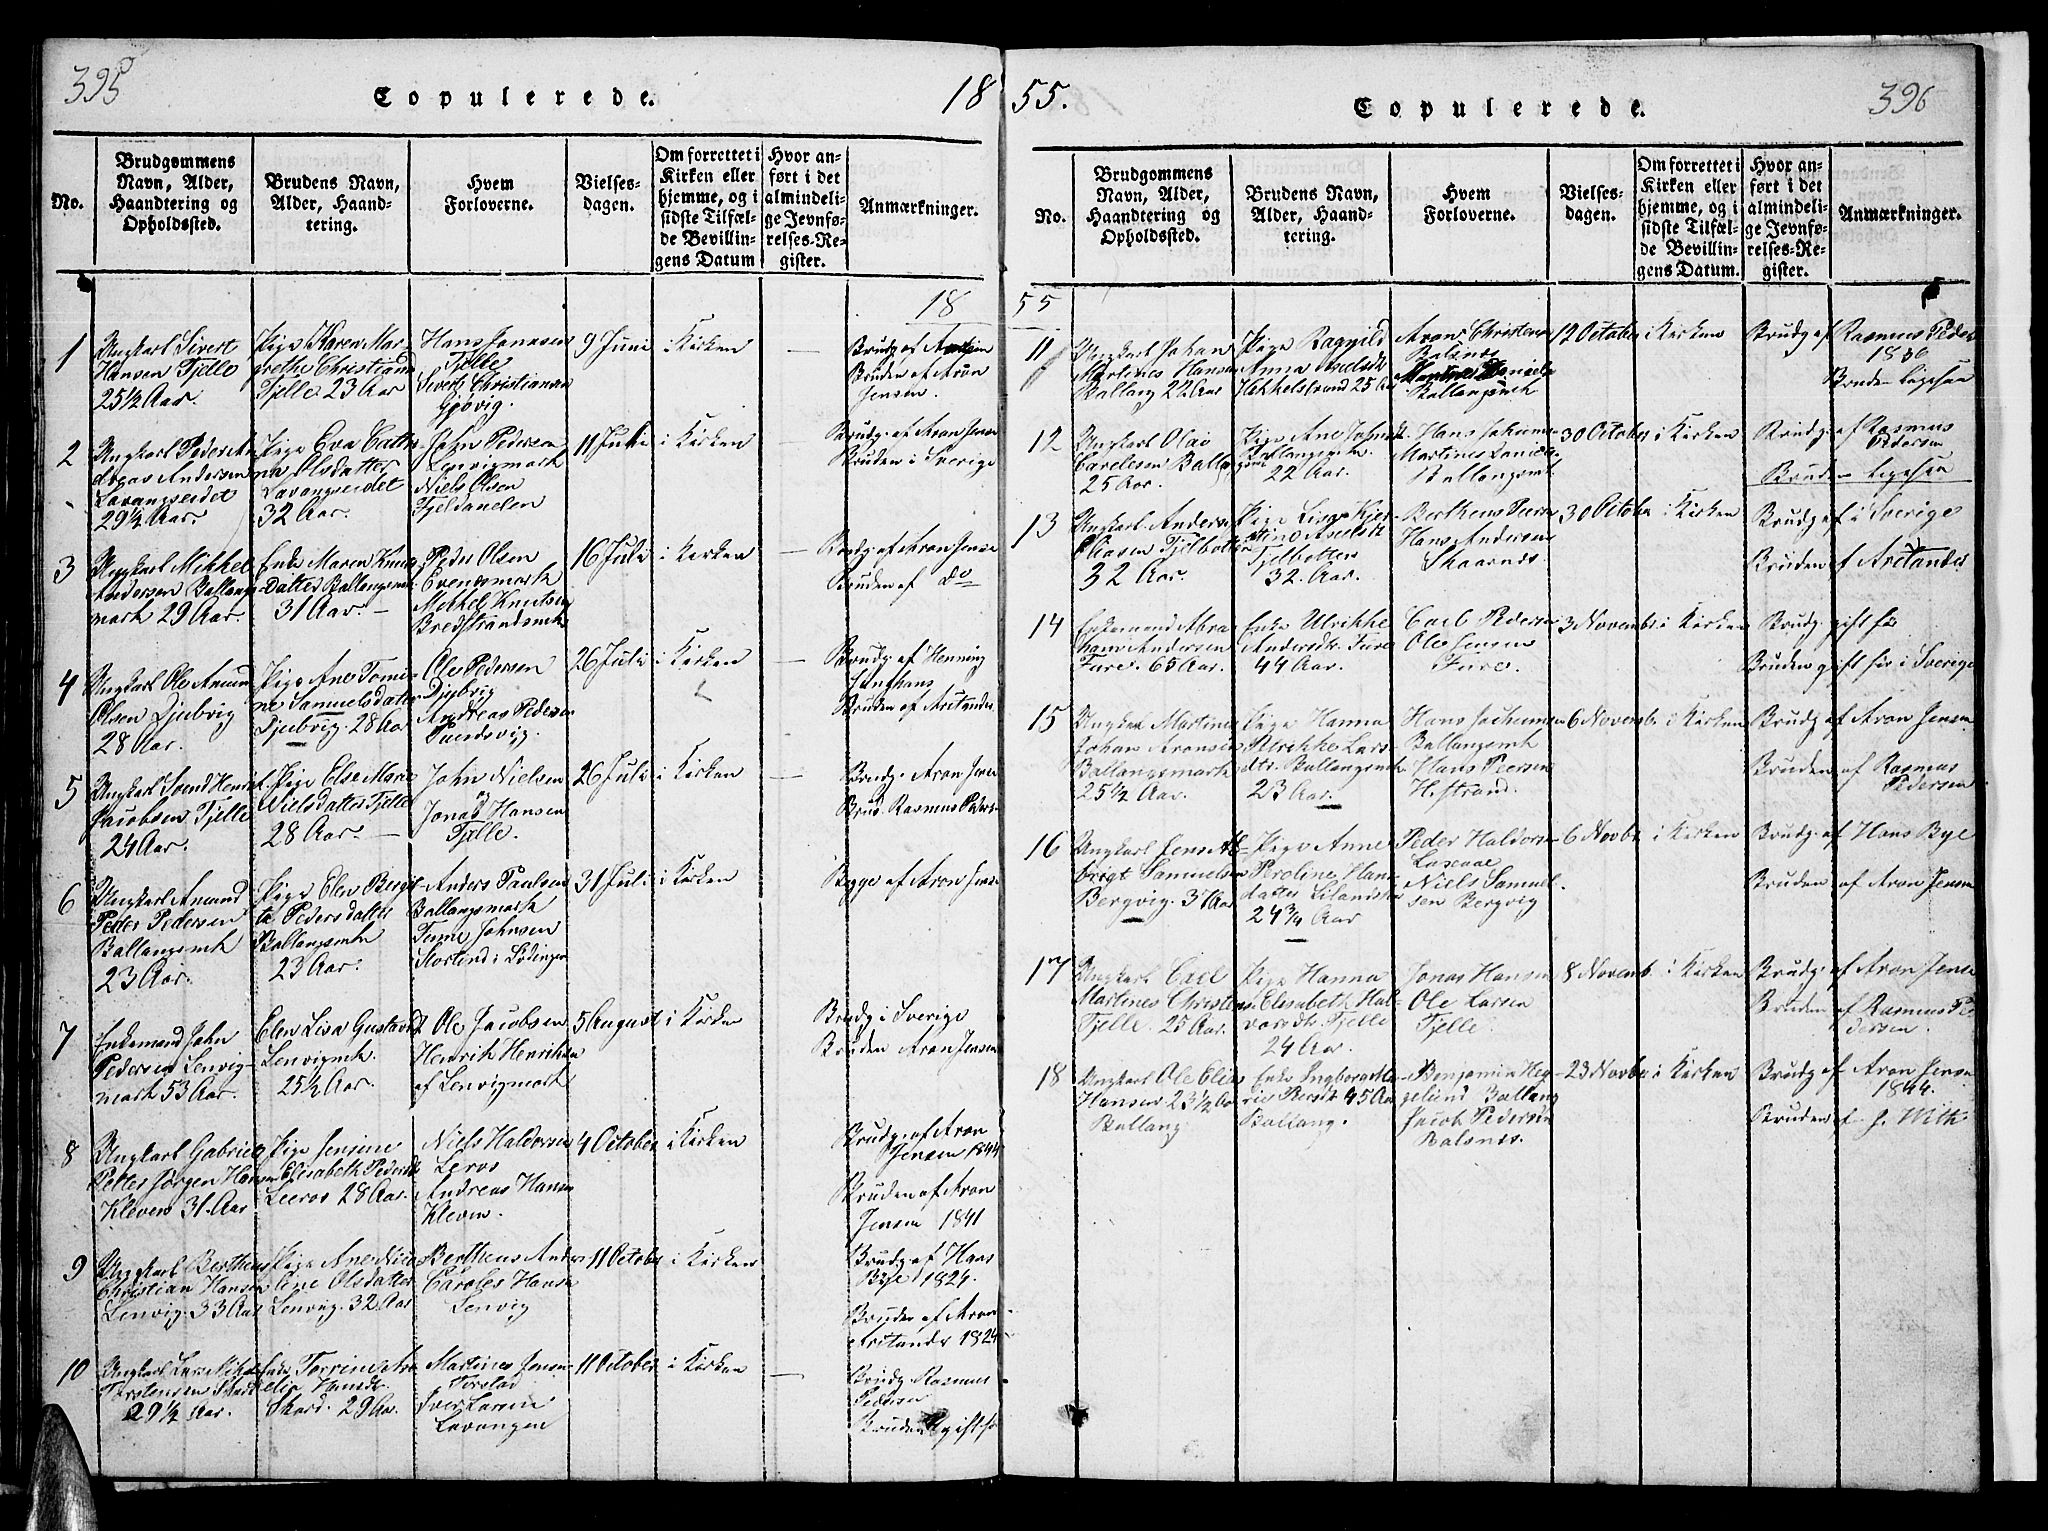 395
Copulerede.
18
No.
Brudgommens
Navn, Alder,
Haandtering og
Opholdssted.
Brudens Navn,
Alder, Haand-
tering.
Hvem
Forloverne.
Vielses-
dagen.
Om forrettet i
Kirken eller
hjemme, og i
sidste Tilfæl-
de Bevillin-
gens Datum
Hvor an-
ført i det
almindeli-
ge Jevnfø-
relses-Re-
gister.
Anmærkninger.
18
1
Ungkarl Sivert
Hansen Fjelle
25½ Aar.
Pige Karen Mar-
grethe Christians
Fjelle 23 Aar
Hans Jonassen
Fjelle
Sivert Christiansen
Gjøvig.
9 Juni
i Kirken
Brudg. af
Bruden af Aron
Jensen.
2
Ungkarl Peder An-
dreas Andersen
Lavangseidet
29½ Aar.
Pige Eva Cathri-
na Olsdatter
Lavangseidet
32 Aar.
John Pedersen
Lenvigmark
Niels Olsen
Fjeldanelen
11 Juli
i Kirken
Brudg. af Aron Jensen
Bruden i Sverige
3
Ungkarl Mikkel
Andersen Ballangs-
mark 29 Aar.
Enke Maren Knuds-
Datter Ballangsmk
31 Aar.
Peder Olsen
Evensmark
Mikkel Knutsen
Bredstrandsmk
16 Juli
i Kirken
Brudg. af Aron Jensen
Bruden af do
4
Ungkarl Ole Amund
Olsen Djubvig
28 Aar.
Pige Ane Tomi-
ne Samuelsdatter
Djubvig 28 Aar
Ole Pedersen
Djubvig
Andreas Pedersen
26 Juli
i Kirken
Brudg. af Henning
Junghans
Bruden af Arctander
5
Ungkarl Svend Henrik
Jacobsen Fjelle
24 Aar.
Pige Else Marie
Nielsdatter Fjelle
28 Aar.
John Nielsen
Jonas Hansen
Fjelle.
26 Juli
i Kirken
Brudg. Aron Jensen
Brud. Rasmus Peders
6
Ungkarl Amund
Peder Pedersen
Ballangsmk
23 Aar.
Pige Elen Bergit-
te Pedersdatter
Ballangsmk
23 Aar.
Anders Paulsen
Ballangsmark
Johnsen
i Lødingen
31 Juli
i Kirken
Begge af Aron Jensen
7
Enkemand John
Pedersen Lenvig-
mark 53 Aar.
Elen Lisa Gustavsd
Lenvigmk.
25½ Aar.
Ole Jacobsen
Henrik Henriksen
af Lenvigmark
5 August
i Kirken
Brudg i Sverige
Bruden Aron Jensen
8
Ungkarl Gabriel
Petter Jørgen Hansen
Kleven 31 Aar
Pige Jensine
Elisabeth Pedersdt
Leeros 28 Aar.
Niels Haldorsen
Leros
Andreas Hansen
Kleven.
4 October
i Kirken
Brudg. af Aron
Jensen 1844
Bruden af Aron
Jensen 1841
9
Ungkarl Bertheus
Christian Hansen
Lenvig. 33 Aar
Pige Ane Nico-
line Olsdatter
Lenvig. 32 Aar
Bertheus Anders
Caroles Hansen
Lenvig
11 October
i Kirken
Brudg af Hans
Bye 1824.
Bruden af Aron
Arctander 1824
10
Ungkarl Lars Nikolai
Torstensen Skard
29½ Aar.
Enke Torrine Ama-
lia Hansdt.
Skard. 29 Aar.
Martines Jensen
Iver Larsen
Lavangen
11 October
i Kirken
Brudg Rasmus
Pedersen
Bruden gift før
55.
Copulerede.
396
No.
Brudgommens
Navn, Alder,
Haandtering og
Opholdssted.
Brudens Navn,
Alder, Haand-
tering.
Hvem
Forloverne.
Vielses-
dagen.
Om forrettet i
Kirken eller
hjemme, og i
sidste Tilfæl-
de Bevillin-
gens Datum.
Hvor an-
ført i det
almindeli-
ge Jevnfø-
relses-Re-
gister.
Anmærkninger.
55
11
Ungkarl Johan
Martines Hansen
Ballang 22 Aar
Pige Ragnild
Anna Axelsdt
Hekkelstrand 25 Aar
Arons Christens
Balsnes
Daniels
Ballangsmk
12 October
i Kirken
Brudg af Rasmus Peder
1836
Bruden ligesaa
12
Ungkarl Olai
Carelesen Ballangsmk
25 Aar.
Pige Ane Johnsdt.
Ballangsmk.
22 Aar.
Hans Jochumsen
Martines Daniels
Ballangsmk
30 October
i Kirken
Brudg. af Rasmus
Pedersen
Bruden ligesaa
13
Ungkarl Anders
Fjelbotten
32 Aar.
Pige Lisa Kjer-
stine Axelsdt
Fjelbotten
32. Aar.
Bertheus Peers
Hans Andersen
Skaarnes.
30 Octobe
i Kirken
Brudg af i Sverige
Bruden af Arctander
14
Enkemand Abra-
ham Andersen
Fure. 65 Aar.
Enke Ulrikke
Andersdtr. Fure
44 Aar.
Carl Pedersen
Ole Jensen
Fure.
3 Novembr.
i Kirken
Brudg gift før
Bruden gift før i Sverige
15
Ungkarl Martines
Johan Aronsen
Ballangsmark
25½ Aar.
Pige Hanna
Ulrikke Lars-
dtr. Ballangsmk
23 Aar.
Hans Jochumsen
Ballangsmk
Hans Peersen
H.strand.
6 Novembr
i Kirken
Brudg af Aron Jensen
Bruden af Rasmus
Pedersen
16
Ungkarl Jens Al-
brigt Samuelsen
Bergvig. 31 Aar
Pige Anne
Peroline Hans
datter Lilandsk
24¾ Aar
Peder Haldorsen
Niels Samuel-
sen Bergvig
6 Novbr
i Kirken
Brudg. af Hans Bye
Bruden af Aron Jensen
17
Ungkarl Carl
Martines Christens
Fjelle. 25 Aar.
Pige Hanna
Elisabeth Hal-
vorsdtr. Fjelle
24 Aar.
Jonas Hansen
Ole Larsen
Fjelle.
8 Novemb
i Kirken
Brudg. af Aron Jensen
Bruden af Rasmus Pe-
dersen.
18
Ungkarl Ole Elias
Hansen 23½ Aar
Ballang
Enke Ingborg Ma-
rie Persdt 45 Aar
Ballang.
Benjamin Heg-
gelund Ballang
Jacob Pedersen
Balsnes.
23 Novbr
i Kirken
Brudg af Aron Jensen
1844.
Bruden af J. With